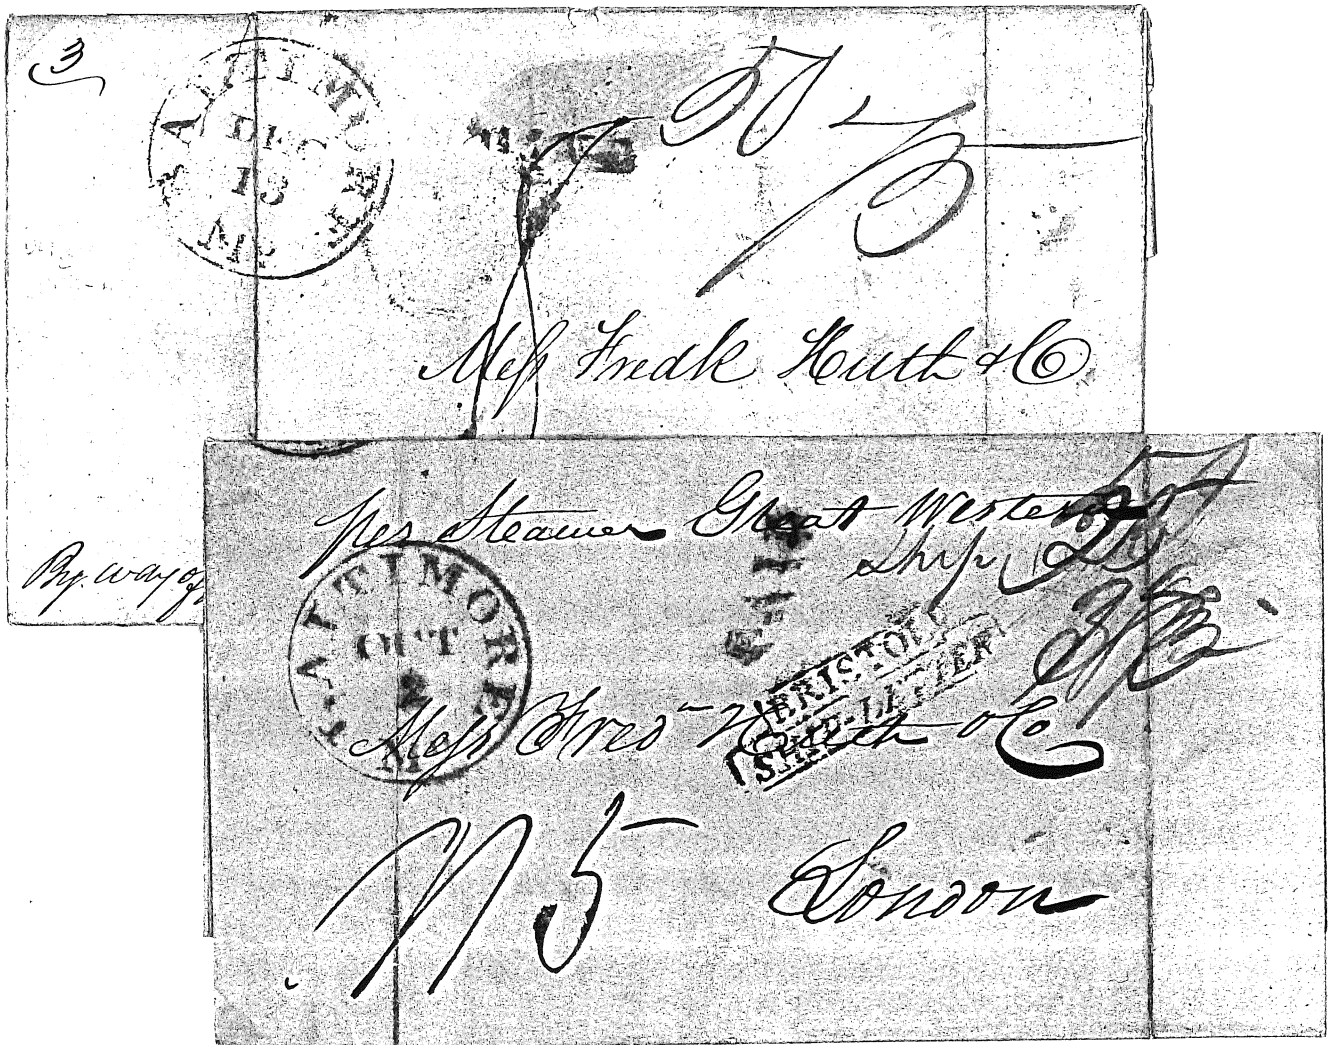 3
BALTIMORE MD
DEC
13
Mess Fredk Huth & Co
By. way of
per Steamer Great Western
Ship
BALTIMORE MD
OCT
2
BRISTOL
SHIP-LETTER
Mess Fred Huth & Co
London